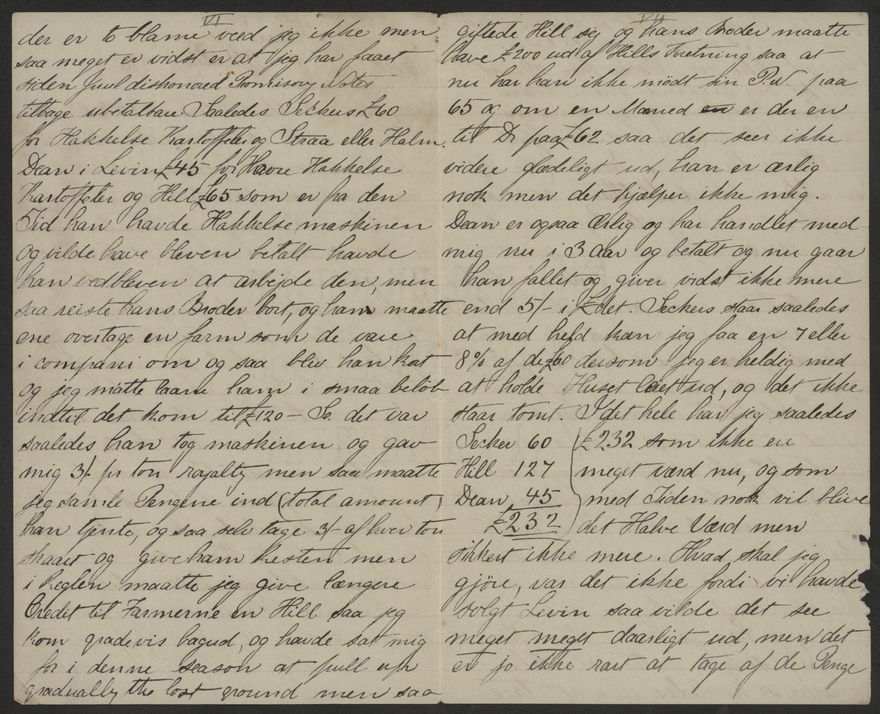 VI
der er to blame veed jeg ikke men
saa meget er vidst er at jeg har faaet
siden Juul dishonored Promisory notes
tilbage ubetalbare Saaledes Seckers £60
for Hakkelse Kartoffeler og Straa eller Halm.
Dean i Levin £45 for Havre Hakkelse
Kartoffeler og Hill £65 som er fra den
Tid han havde Hakkelse maskinen
og vilde have bleven betalt havde
han vedbleven at arbejde den, men
saa reiste hans Broder bort, og han maatte
ene overtage en farm som de vare
i compani om og saa blev han kort
og jeg matte laane ham i smaa beløb
indtil det kom til £120 – So. det var
saaledes han tog maskinen og gav
mig 3/- pr ton royalty men saa maatte
jeg samle Pengene ind (total amount)
han tjente, og saa selv tage 3/- af hver ton
skaaret og give ham Resten men
i Reglen maatte jeg give længere
Credit til Farmerne en Hill saa jeg
kom gradevis bagud, og havde sat mig
for i denne season at pull up
gradually the lost ground men saa
VII
giftede Hill sig og hans Broder maatte
have £200 ud af Hills Foretning saa at
nu har han ikke mødt sin P.N. paa
65 og om en Maaned er der en
til Dr paa £62 saa det seer ikke
videre glædeligt ud, han er ærlig
nok men det hjælper ikke mig.
Dean er ogsaa Ærlig og har handlet med
mig nu i 3 aar og betalt og nu gaar
han fallit og giver vidst ikke mere
end 5/- i £det. Seckers staar saaledes
at med held kan jeg faa en 7 eller
8% af de £60 dersom jeg er heldig med
at holde Huset laest ud, og det ikke
staar tomt. I det hele har jeg saaledes
Secker 60
Hill 127
Dean 45
£232
£232 som ikke en
meget værd nu, og som
med Tiden nok vil blive
det Halve Værd men
sikkert ikke mere. Hvad skal jeg
gjöre, var det ikke fordi vi havde
solgt Levin saa vilde det see
meget meget daarligt ud, men det
er jo ikke rart at tage af de Penge